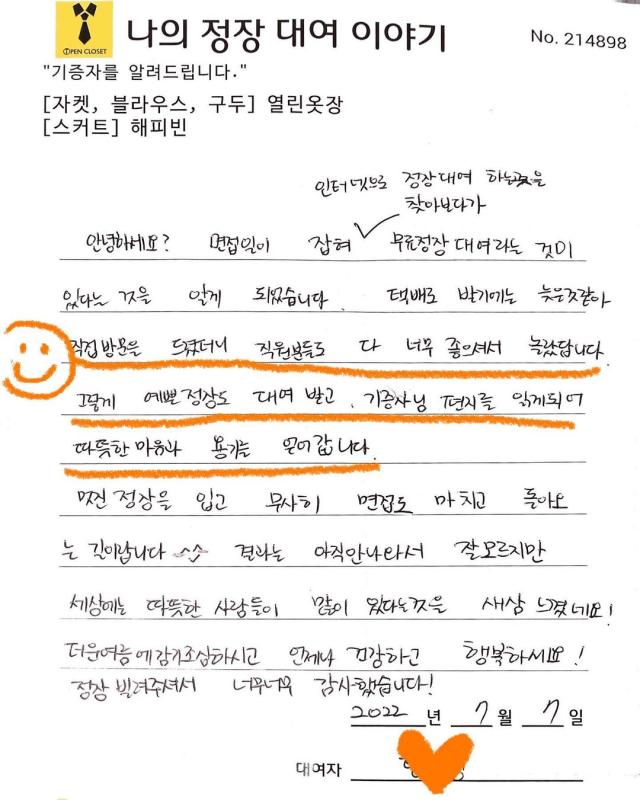 OPEN CLOSET
나의 정장 대여 이야기
No. 214898
"기증자를 알려드립니다."
[자켓, 블라우스, 구두] 열린옷장
[스커트] 해피빈
인터넷으로 정장대여 하는곳을
찾아보다가
안녕하세요? 면접일이 잡혀 무료정장 대여라는 것이
있다는 것을 알게 되었습니다. 택배로 받기에는 늦은것같아
직접방문을 드렸더니 직원분들도 다 너무 좋으셔서 놀랐답니다
그렇게 예쁜정장도 대여 받고, 기증자님 편지를 읽게되어
따뜻한 마음과 용기는 얻어갑니다.
멋진 정장을 입고 무사히 면접도 마치고 돌아오
는 길이랍니다 ^^ 결과는 아직안나와서 잘모르지만
세상에는 따뜻한 사람들이 많이 있다는것을 새삼 느꼈네요!
더운여름에감기조심하시고 언제나 건강하고 행복하세요!
정장 빌려주셔서 너무너무 감사했습니다!
2022 년 7 월 7 일
대여자